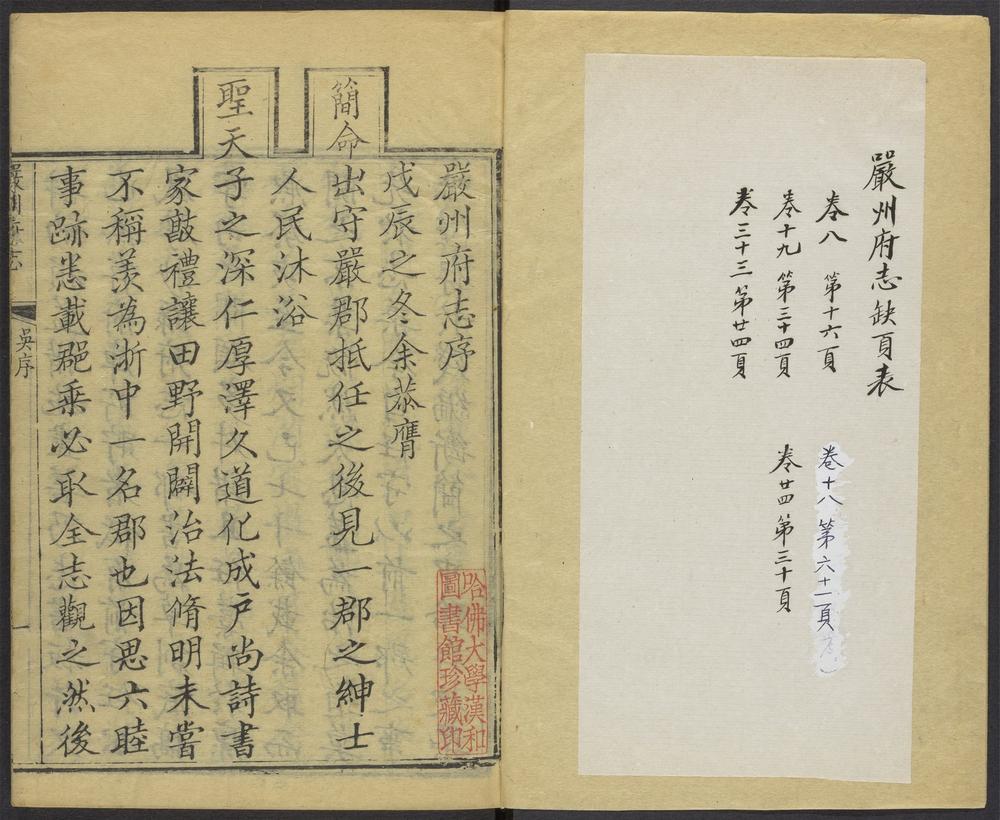 嚴州府志缺頁表
卷八 第十六頁
卷十八 第六十二頁
卷十九 第三十四頁
卷廿四 第三十頁
卷三十三 第廿四頁
嚴州府志序
戊辰之冬余恭膺
簡命出守嚴郡抵任之後見一郡之紳士
人民沐浴
聖天子之深仁厚澤久道化成戶尚詩書
家敦禮讓田野開闢治法脩明未嘗
不稱羨為浙中一名郡也因思六睦
事跡悉載郡乘必取全志觀之然後
嚴州府志
吳序
一
哈佛大學漢和
圖書館珍藏印